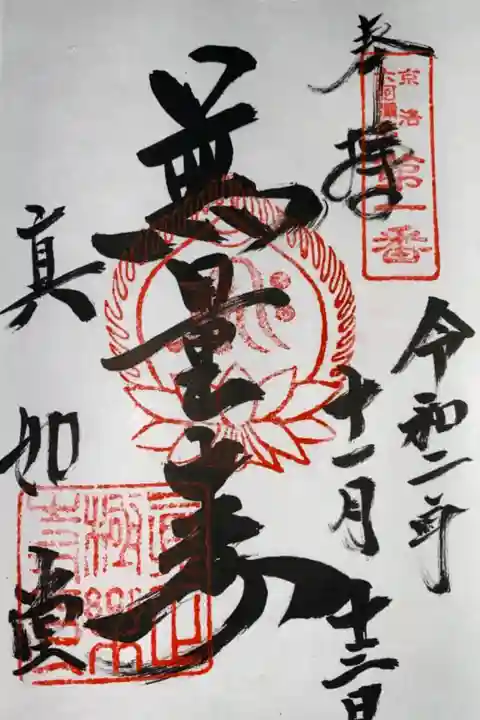 奉拝
京洛
六阿彌陀
第一番
令和二年
十一月
十三日
無量寿
真如堂